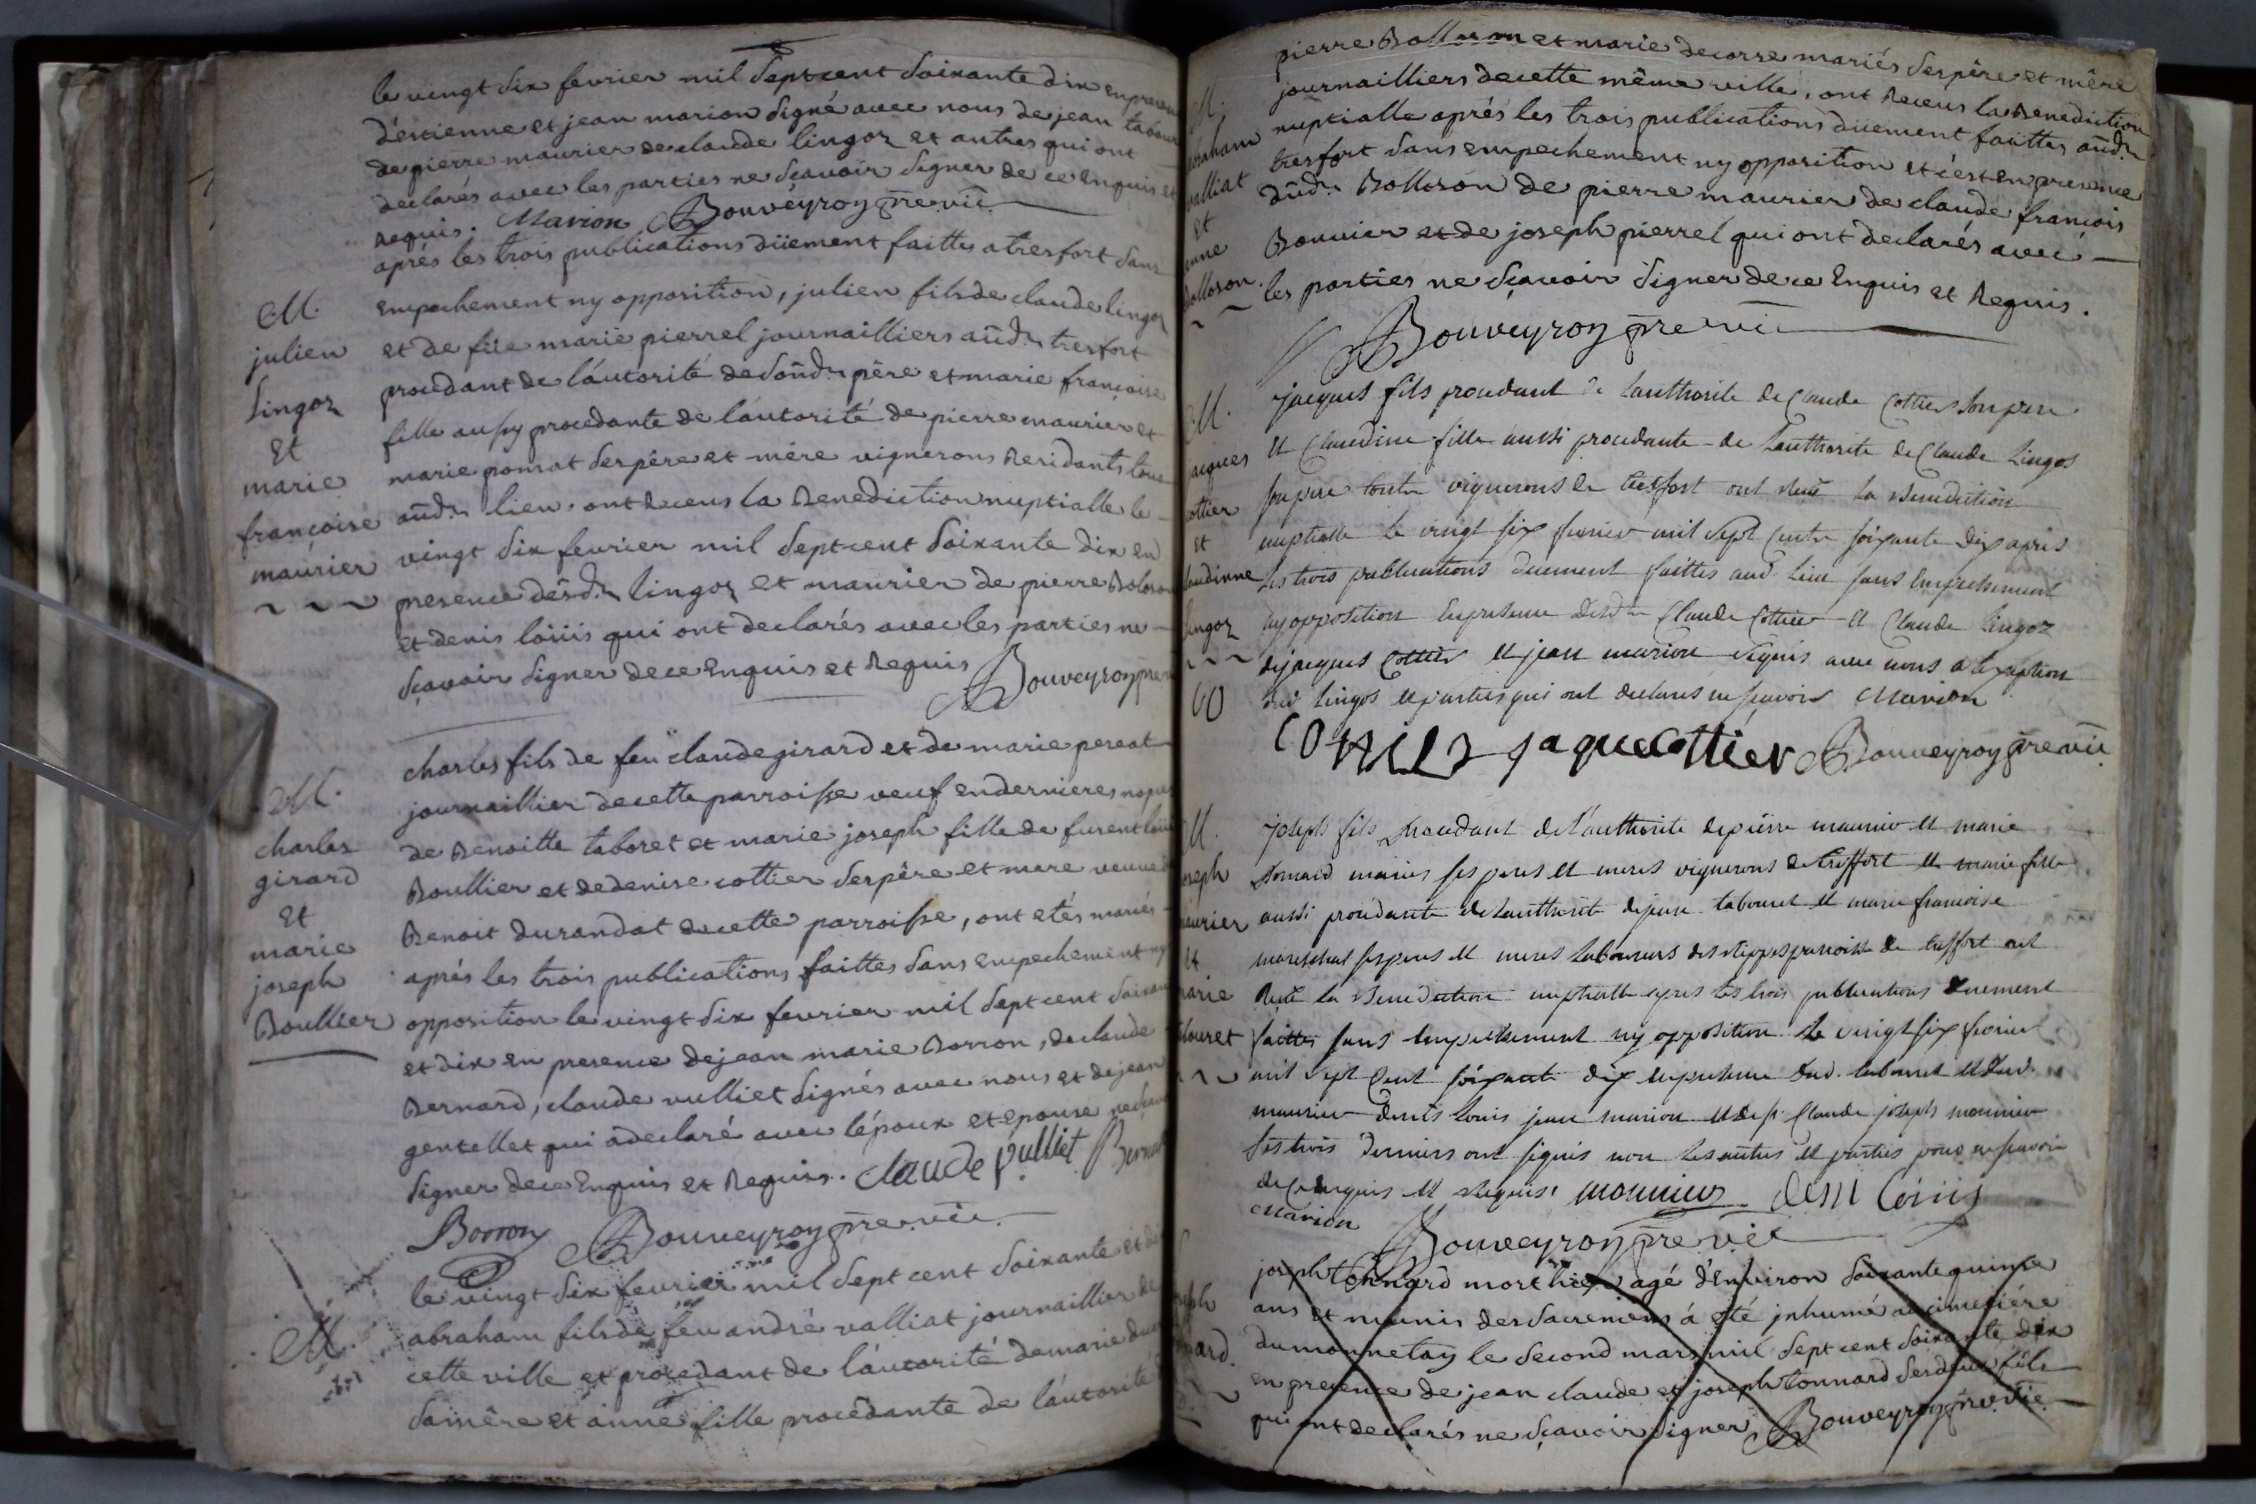 le vingt six fevrier mil sept cent soixante dix en presence
d'estienne et jean marion signé avec nous de jean
de pierre maurier de claude lingoz et autres qui ont
declarés avec les parties ne sçavoir signer de ce enquis et
requis. Marion Bouveyron pre vic
aprés les trois publications düement faittes a tresfort sans
M.
julien
Lingoz
et
marie
françoise
maurier
empechement ny opposition, julien fils de claude lingoz
et de füe marie pierrel journailliers aud. tresfort
procedant de láutorité de sond. pére et marie françoise
fille aussy procedante de láutorité de pierre maurier et
marie ses pére et mére vignerons residants tous
aud. lieu, ont receus la Benediction nuptialle le
vingt six fevrier mil sept cent soixante dix en
presence desd. lingoz et maurier de pierre
et denis loüis qui ont declarés avec les parties ne
sçavoir signer de ce enquis et requis Bouveyron pre
M.
charles
girard
et
marie
joseph
Boullier
charles fils de feu claude girard et de marie pereat
journaillier de cette parroisse veuf en dernieres
de Benoitte taboret et marie joseph fille de furent
Boullier et de denise cottier ses pére et mere veuve
Benoit durandat de cette parroisse, ont etés mariés
aprés les trois publications faittes sans empechement ny
opposition le vingt six fevrier mil sept cent
et dix en presence de jean marie Borron, de claude
Bernard, claude vulliet signés avec nous et de jean
gentellet qui a declaré avec lépoux et epouse
signer de ce enquis et requis. claude vulliet
Borron Bouveyron pre vic.
M.
le vingt six fevrier mil sept cent soixante et
abraham fils de feu andré valliat journaillier de
cette ville et procedant de láutorité de marie
sa mére et anne fille procedante de láutorité
pierre Bolloson et marie decorre mariés ses pére et mére
journailliers de cette même ville, ont receus la Benediction
nuptialle aprés les trois publications düement faittes aud.
tresfort sans empechement ny opposition et c'est en presence
dud. Bolloson de pierre maurier de claude françois
Bouvier et de joseph pierrel qui ont declarés avec
les parties ne sçavoir signer de ce Enquis et Requis.
Bouveyron pre vic
M.
valliat
et
Bolloson.
M.
cottier
et
lingoz
jacques fils procedant de lauthorité de Claude Cottier son pere
et Claudine fille aussi procedante de Lauthorité de Claude Lingos
son pere vignerons de tresfort ont la Benediction
nuptialle le vingt six fevrier mil sept Cents soixante Dix apres
les trois publications duement faittes aud. lieu sans Empechement
ny opposition En presence Desd. Claude Cottier et Claude Lingoz
de jacques Cottier et jean marion signés avec nous a lexeption
dud Lingos et parties qui ont declarés ne sçavoir Marion
jaque Cottier Bouveyron pre vic
M.
et
joseph fils procedant de l'authorité de pierre maurier et marie
mariés ses peres et meres vignerons de treffort et marie fille
aussi procedante de lauthorité de jean tabouret et marie françoise
ses peres et meres laboureurs parroisse de treffort ont
la Benediction nuptialle apres les trois publications duement
faittes sans Empechement ny opposition le vingt six fevrier
mil sept Cent soixante dix en presence dud. tabouret et dud.
maurier denis louis jean marion et de sr. Claude joseph monnier
les trois derniers ont signés non les autres et parties pour ne sçavoir
de ce enquis et requis. monnier deni loüis
Marion
Bouveyron pre vic
joseph tonnard mort hier agé d'environ soixante quinse
ans et munis des sacremens á eté jnhumé au cimetiére
du monnetay le second mars mil sept cent soixante dix
en presence de jean claude et joseph tonnard ses deux fils
qui ont declarés ne sçavoir signer Bouveyron pre vic.